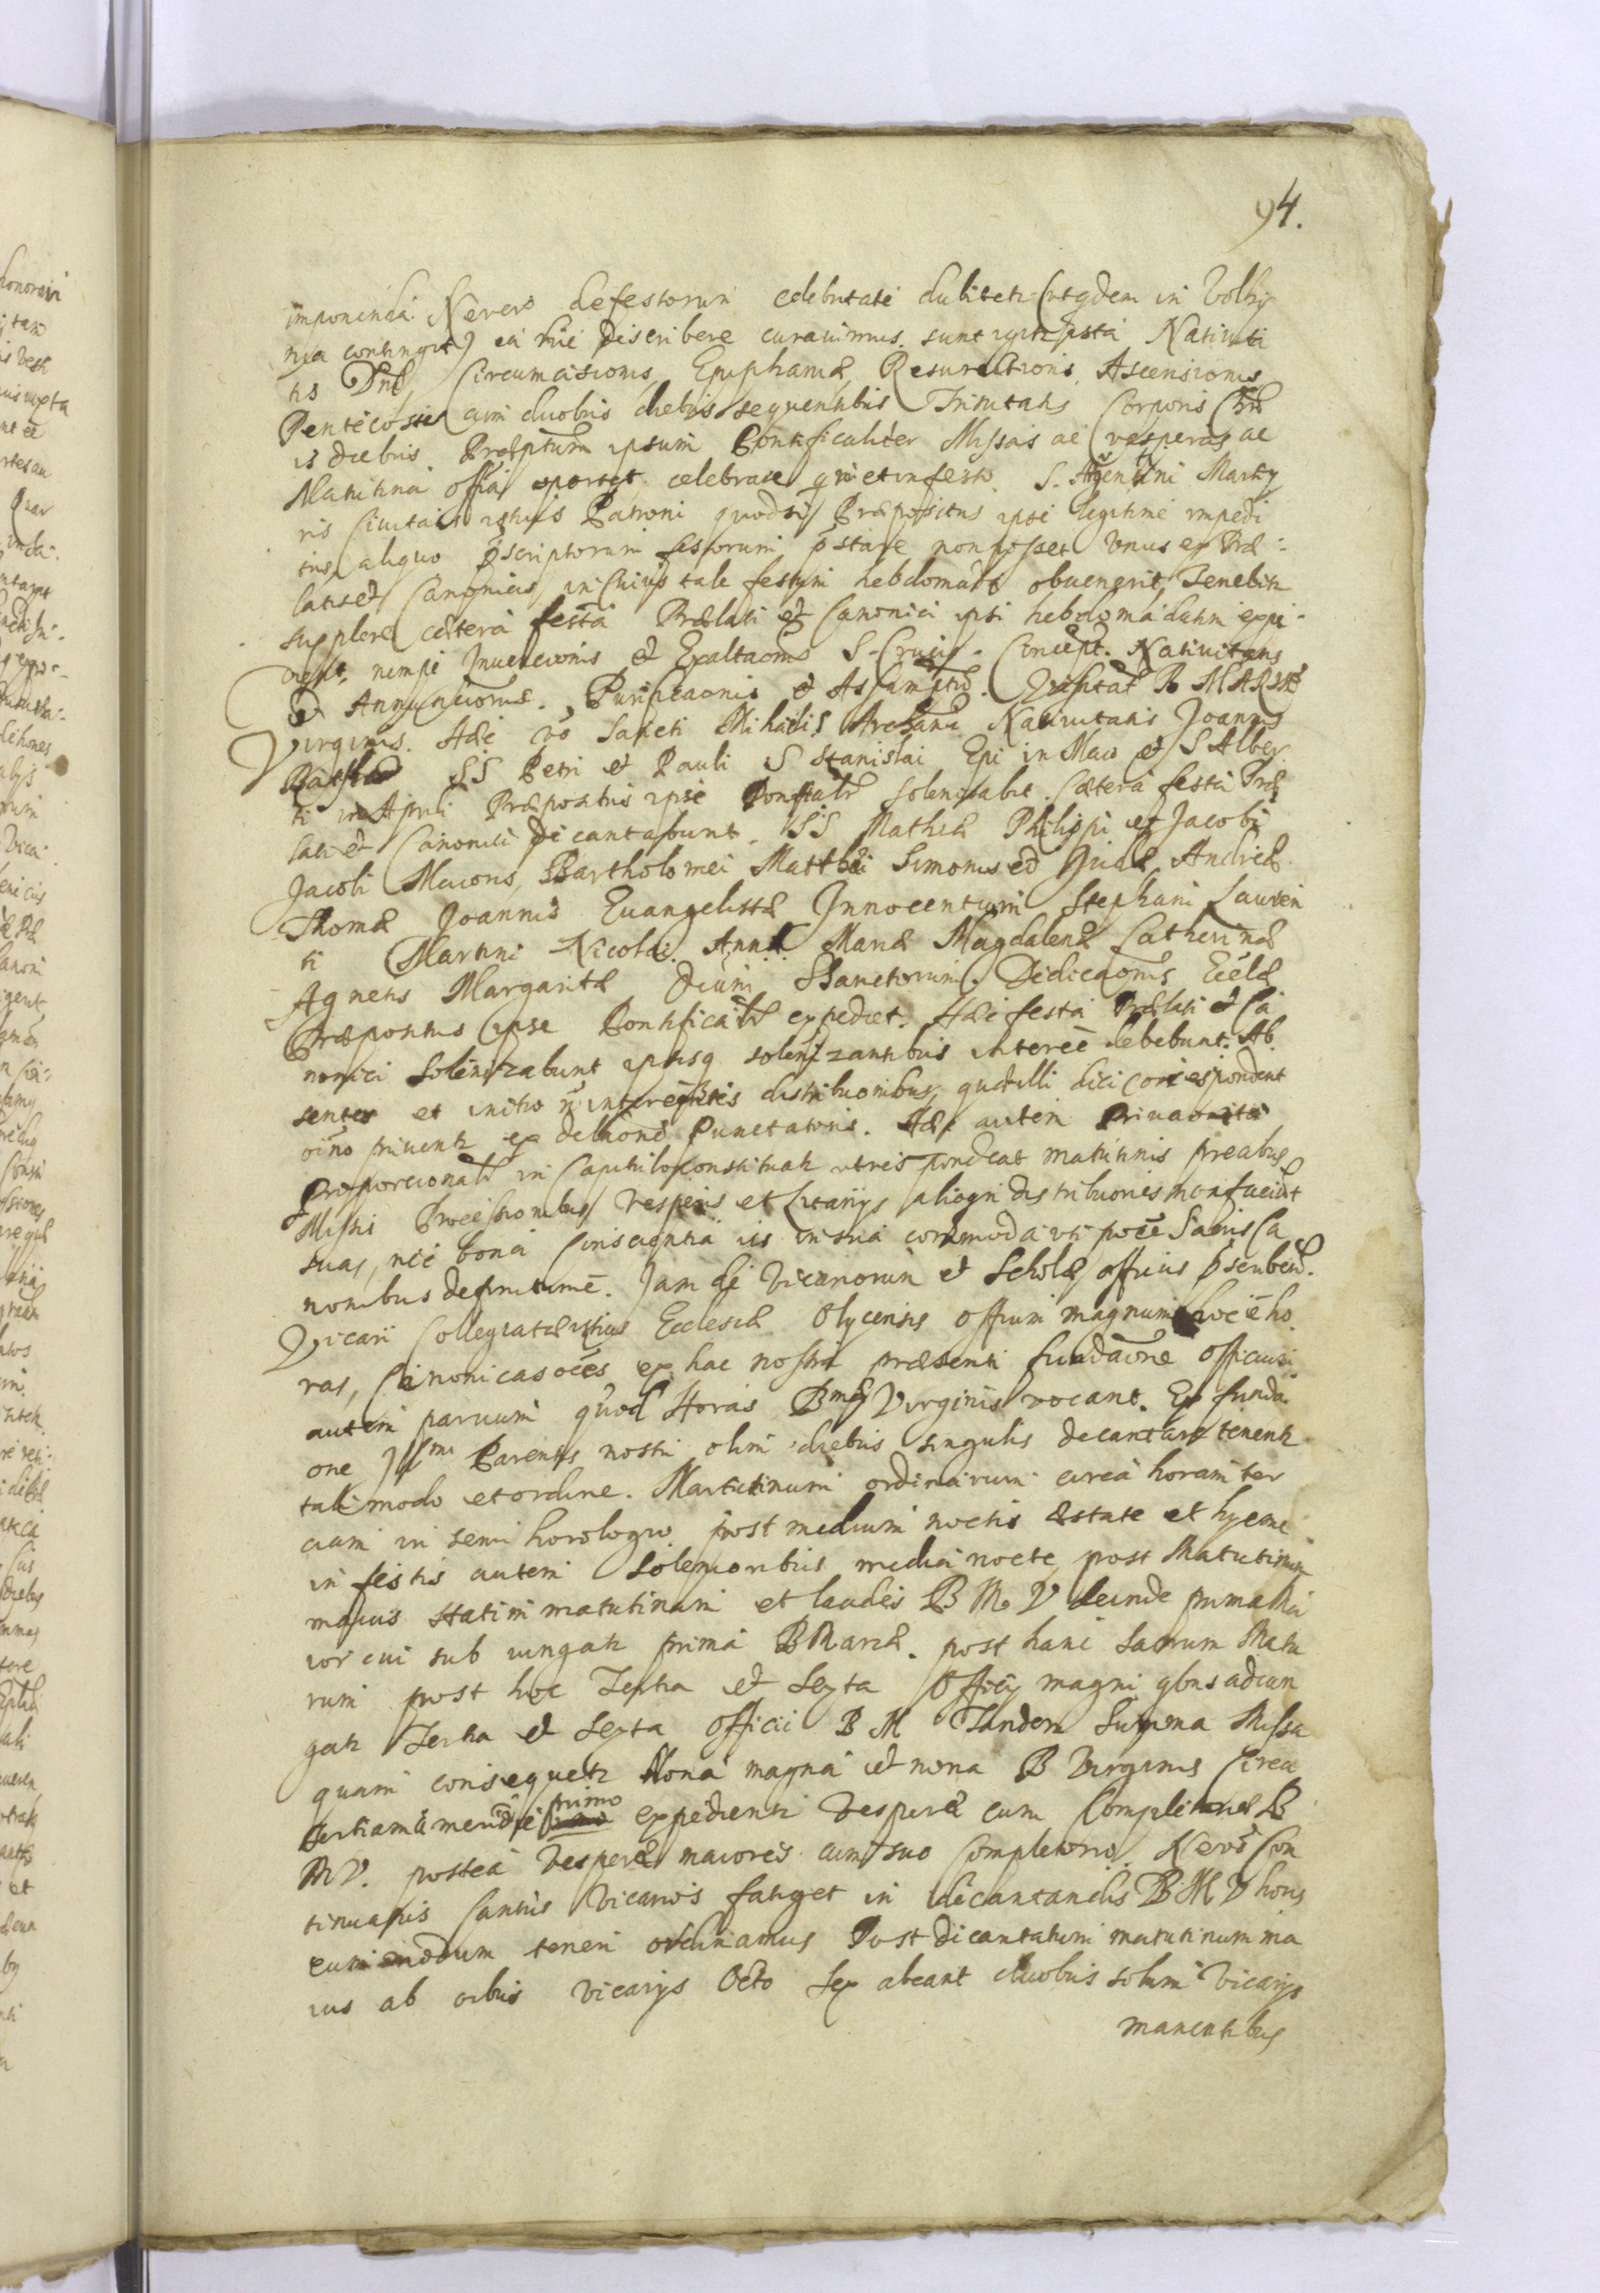 94.
imponenda. Ne vero de festorum celebritate dubitetr (ut qdem in Volhy
nia contingit) ea hic describere curavimus. sunt igitr ista Nativita
tis Dni, Circumcisionis, Epiphaniæ, Resurectionis, Ascensionis,
Pentecostes cum duobus diebus sequentibus Trinitatis Corporis Chri
is diebus Præptum ipsum Pontificaliter Missas ac vesperas ac
Matutina offia oportet celebrare, qui et in festo S. Martÿ
ris Civitatis istius Patroni quodsi Præpositus ipse legitime impedi
tus aliquo pscriptorum festorum pstare non posset Unus ex Præ-
latis et Canonicis, in cuius tale festum hebdomada obvenerit, Tenebitr
supplere cætera festa Prælati et Canonici ipsi hebdomadatim expe-
dient, nempe Inventionis et Exaltaonis S. Crucis. Concept. Nativitatis
et Annunciationis. Purificaonis et Assumptio. Visitat B MARIÆ
Virginis. Hæc vo Sancti Mihaelis Archani Nativitatis Joannis
Baptistæ SS Petri et Pauli S Stanislai Epi in Maio et S Alber
ti in Aprili Præpositus ipse Pontficalr solenizabit. Cætera festa Præ
lati et Canonici decantabunt. SS Mathiæ Philippi et Jacobi
Jacobi Maioris, Bartholomei Matthæi Simonis et Judæ, Andreæ
Thomæ Joannis Evangelistæ Innocentum Stephani Lauren
ti Martini Nicolai. Annæ Mariæ Magdalenæ Catherinæ
Agnetis Margaritæ Oium Sanctorum. Dedicaonis Ecclæ
Præpositus ipse Pontificalr expediet. Hæc festa Prælati et Ca
nonici Solenizabunt ipsisq solenizantibus interee debebunt. Ab
sentes et initio n distribuonibus, quæ illi diei correspondent
oino priventr ex delaone Punctatoris. Hæc autem privao ita
proporcionalr in Capitulo constituatr ut respondeat matutinis precibus
Missis Processionibus Vesperis et Litanijs alioqn distribuones non faciut
suas, nec bona consciantia iis in sua commoda uti poce Sacris Ca
nonibus definitum e. Jam de Vicariorum et Scholæ officiis pscribend.
Vicarii Collegiatæ istius Ecclesiæ Olycensis offium magnum hoc e ho
ras, Canonicas oes ex hac nostra præsenti fundaone officium
autem parvum quod Horas Bmæ Virginis vocant. Ex funda
one Illmi Parentis nostri olim diebus singulis decantare tenentr
tali modo et ordine. Matutinum ordinarium circa horam ter
ciam in semi horologio post medium noctis æstate et hyeme
in festis autem Solenioribus media nocte, post Matutinum
maius statim matutinum et laudes B M V deinde prima Ma
ior cui sub iungatr prima B Mariæ. post hanc Sacrum Matu
rum post hoc Tertia et Sexta Officij magni qbus adiun
gatr Tertia et Sexta officii B M Tandem Summa Missa
quam consequetr Nona magna et nona B Virginis Circa
tertiam a meridie primo expedienti Vesperæ cum Completorio B
M V. postea Vesperæ maiores cum suo Completorio. Ne vo Con
tinuatus Cantus Vicarios fatiget in decantandis B M V horis
eum modum teneri ordinamus Post decantatum matutinum ma
ius ab oibus Vicarijs Octo Sex abeant duobus solum Vicarijs
manentibus